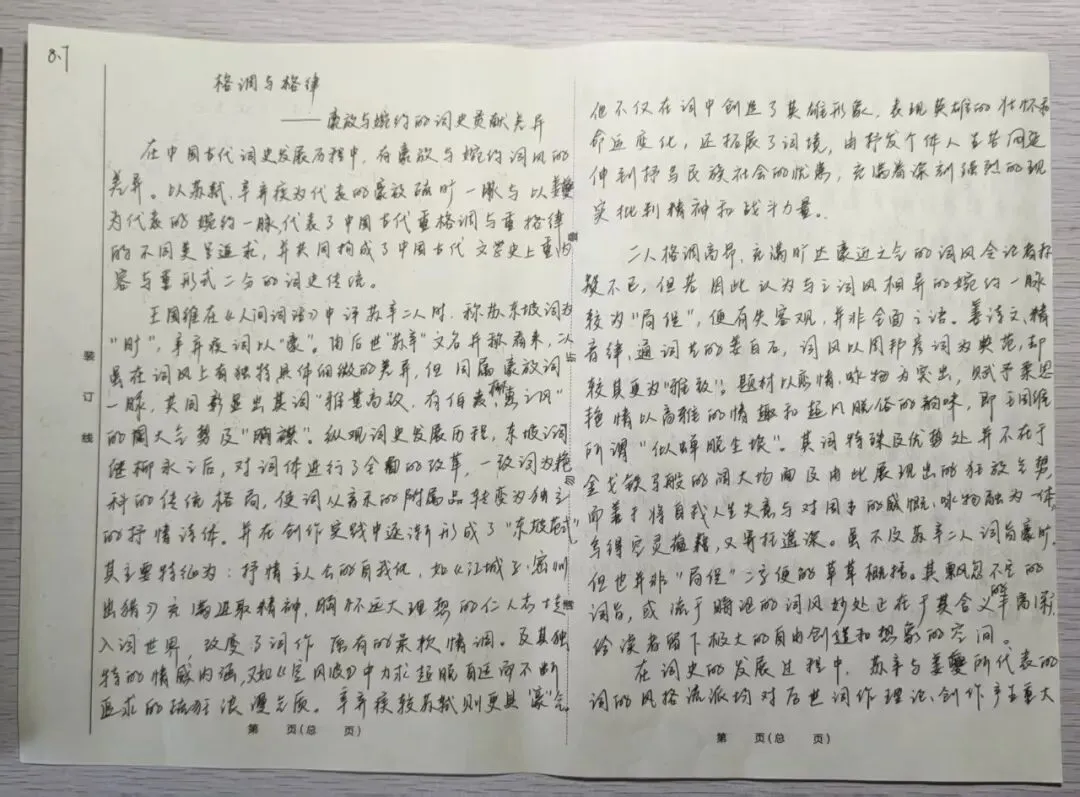 8.7
格调与格律
——豪放与婉约的词史贡献差异
在中国古代词史发展历程中，有豪放与婉约词风的
差异。以苏轼、辛弃疾为代表的豪放疏旷一脉与以姜夔
为代表的婉约一脉，代表了中国古代重格调与重格律
的不同美学追求，并共同构成了中国古代文学史上重内
容与重形式二分的词史传统。
王国维在《人间词话》中评苏辛二人时，称苏东坡词为
"旷"，辛弃疾词以"豪"。由后世"苏辛"文名并称看来，二人
虽在词风上有独特具体细微的差异，但同属豪放词
一脉，共同彰显出其词"雅量高致，有伯夷、柳惠之风"
的阔大气势及"胸襟"。纵观词史发展历程，东坡词
继柳永之后，对词体进行了全面的改革，一改词为艳
科的传统格局，使词从音乐的附属品转变为独立
的抒情诗体。并在创作实践中逐渐形成了"东坡范式"，
其主要特征为：抒情主人公的自我化，如《江城子·密州
出猎》充满进取精神，胸怀远大理想的仁人志士
入词世界，改变了词作原有的柔软情调。及其独
特的情感内涵，又如《定风波》中力求超脱自适而不断
追求的疏狂浪漫气质。辛弃疾较苏轼则更具"豪"气，
第 页(总 页)
但不仅在词中创造了英雄形象，表现英雄的壮怀和
命运变化，还拓展了词境，由抒发个体人生苦闷延
伸到抒写民族社会的忧患，充满着深刻强烈的现
实批判精神和战斗力量。
二人格调高昂，充满旷达豪迈之气的词风令记者怀
疑不已，但若因此认为与之词风相异的婉约一脉
较为"局促"，便有失客观，并非全面之语。善诗文、精
音律、通词老的姜白石，词风以周邦彦词为典范，却
较其更为"雅致"；题材以恋情、咏物为突出，赋予柔思
艳情以高雅的情趣和超凡脱俗的韵味，即王国维
所谓"似蝉脱尘埃"。其词特殊及优势处并不在于
金戈铁马般的阔大场面及由此展现出的狂放气势，
而善于将自我人生失意与对国事的感慨、咏物融为一体，
写得空灵蕴藉，又寄托遥深。虽不及苏辛二人词旨豪旷，
但也并非"局促"二字便的草草概括。其飘忽不定的
词旨，或流于晦涩的词风妙处正在于其含义的高深，
给读者留下极大的自由创造和想象的空间。
在词史的发展过程中，苏辛与姜夔所代表的
词的风格流派均对后世词作理论、创作产生重大
第 页(总 页)
装
订
线